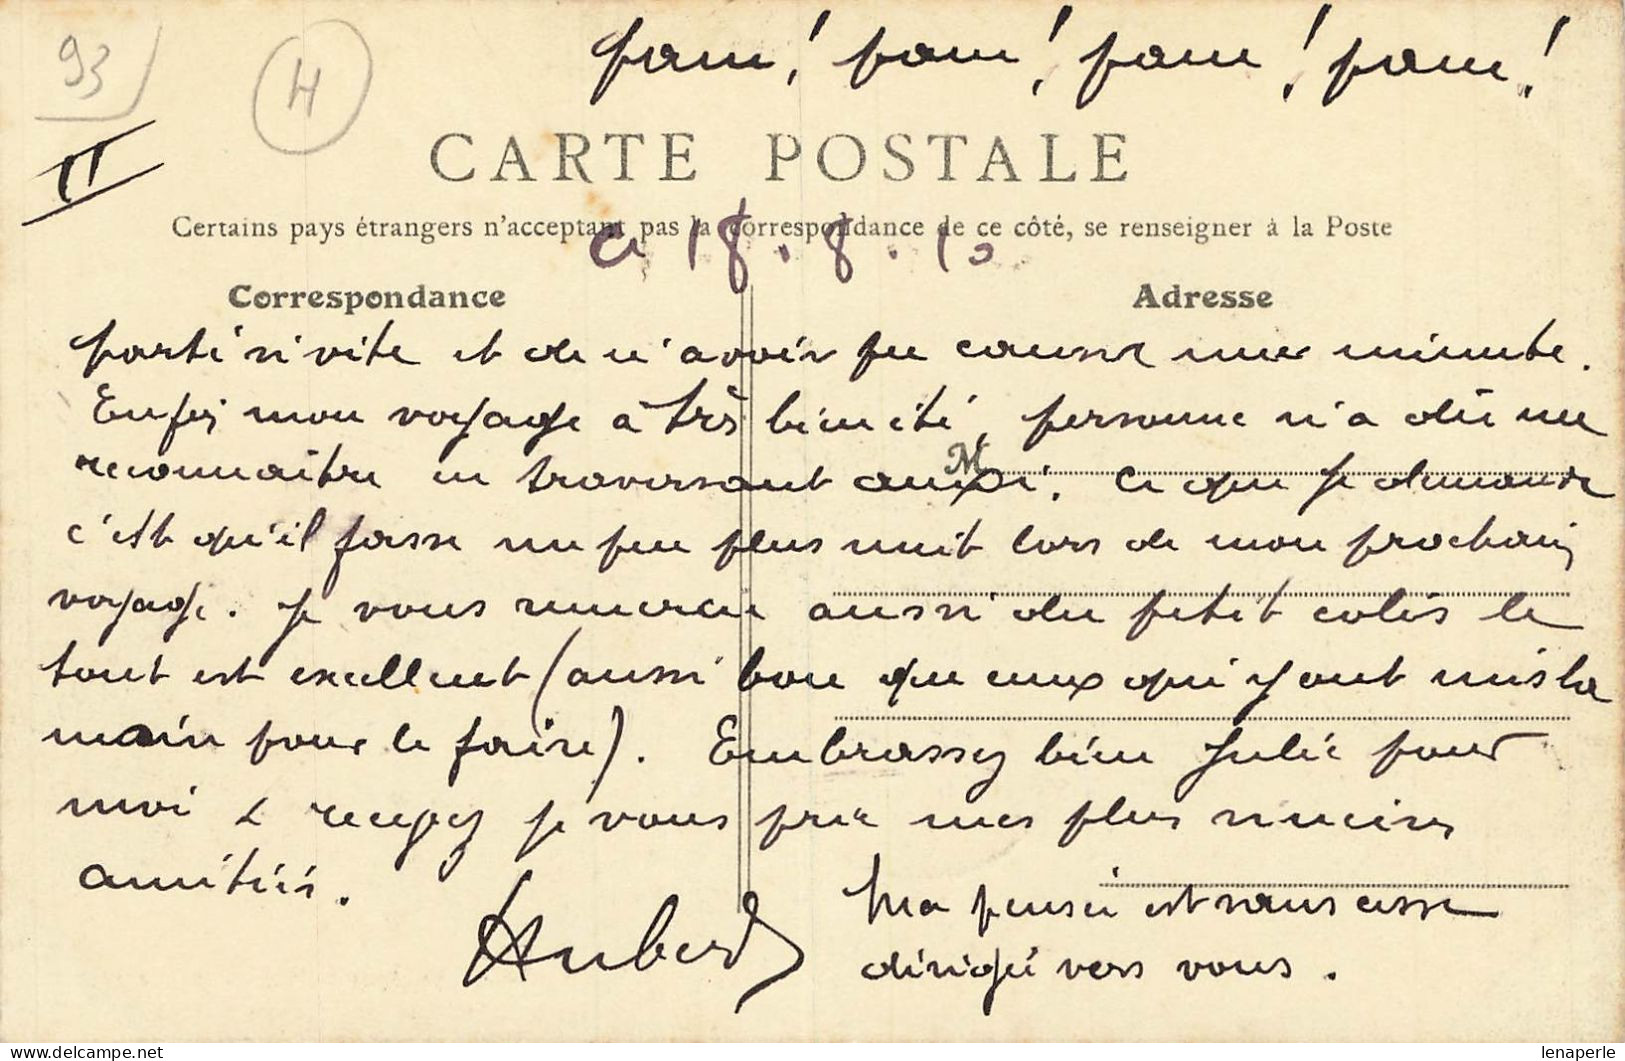 93
H
II
pam! pam! pam! pam!
CARTE POSTALE
Certains pays étrangers n'acceptent pas la correspondance de ce côté, se renseigner à la Poste
ce 18.8.10
Correspondance
Adresse
parti si vite et de n'avoir pu causer une minute.
Enfin mon voyage a très bien été, personne n'a dû me
reconnaître en traversant ainsi. Ce que je demande
M
c'est qu'il fasse un peu plus nuit lors de mon prochain
voyage. Je vous remercie aussi du petit colis le
tout est excellent (aussi bon que ceux qui y ont mis la
main pour le faire). Embrassez bien Julie pour
moi & recevez je vous prie mes plus sincères
amitiés.
Aubert
Ma pensée est sans cesse
dirigé vers vous.
delcampe.net
lenaperle